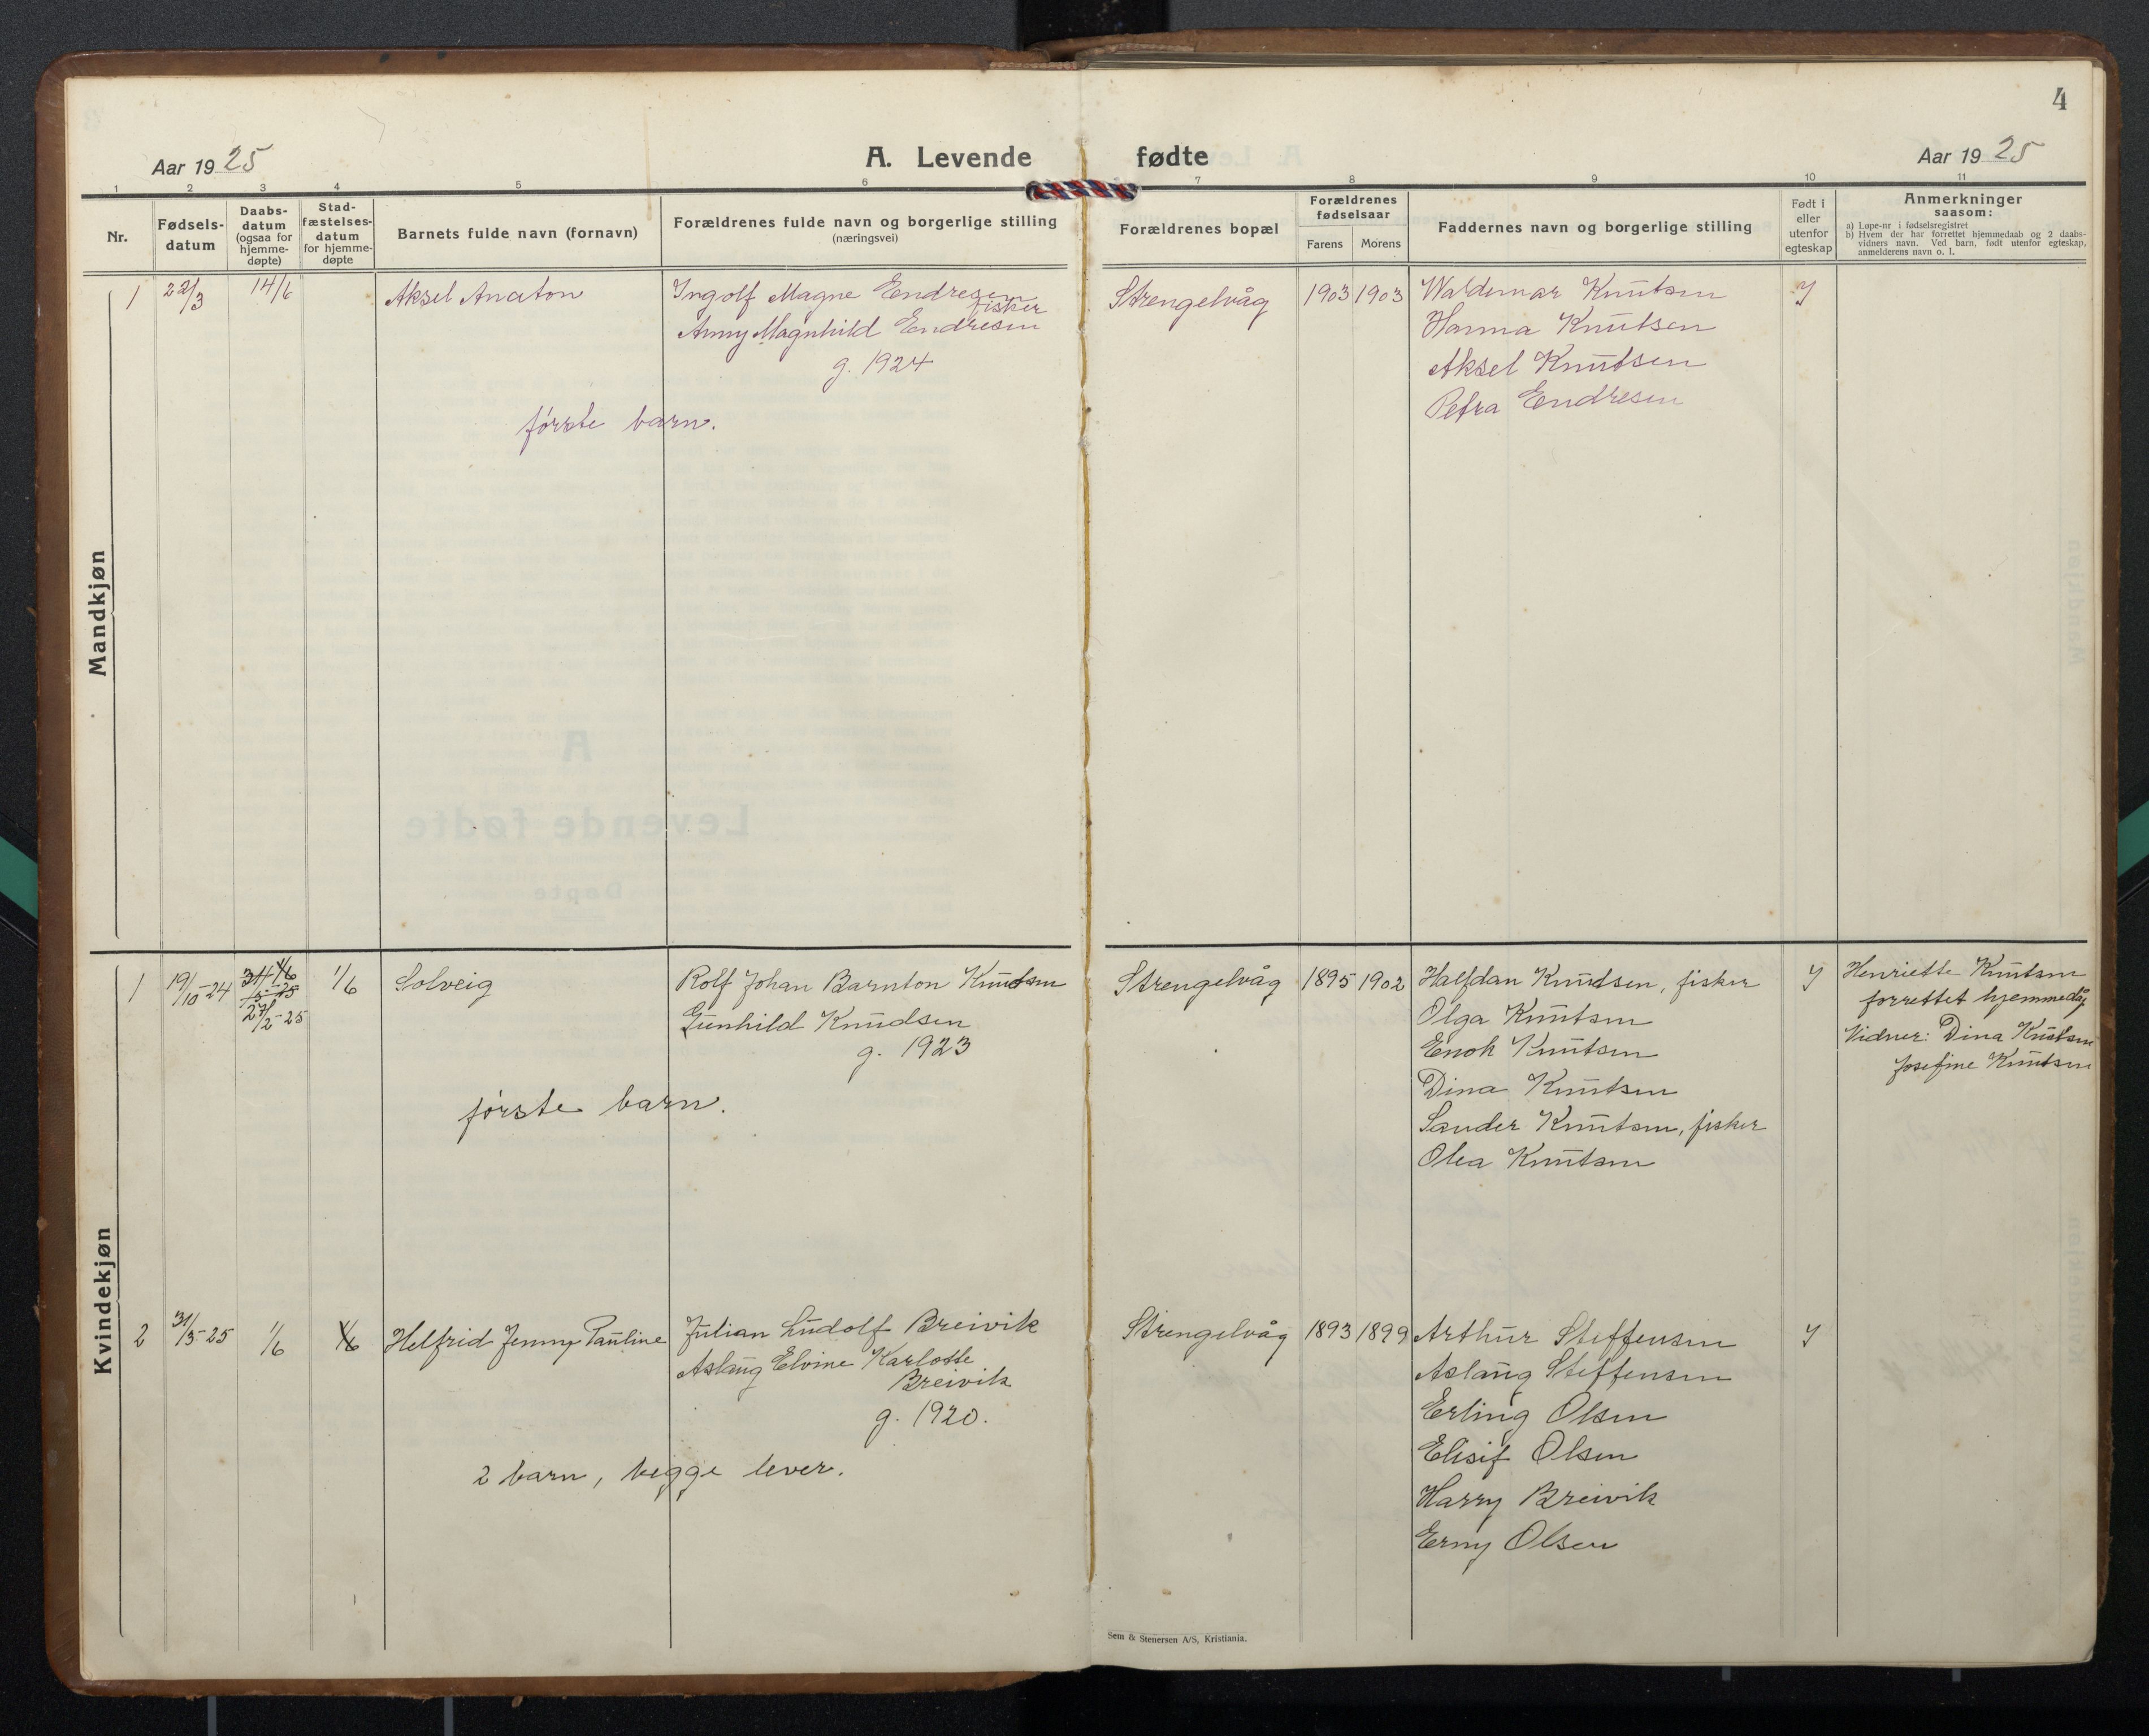 4
Aar 1925
A. Levende fødte
Aar 1925
1 2 3 4 5 6 7 8 9 10 11
Nr.
Fødselsdatum
Daabsdatum (ogsaa for hjemmedøpte)
Stadfæstelsesdatum for hjemmedøpte
Barnets fulde navn (fornavn)
Forældrenes fulde navn og borgerlige stilling
(næringsvei)
Forældrenes bopæl
Forældrenes fødselsaar
Farens Morens
Faddernes navn og borgerlige stilling
Født i eller utenfor egteskap
Anmerkninger
saasom:
a) Løpe-nr i fødselsregistret
b) Hvem der har forrettet hjemmedaab og 2 daabs-
vidners navn. Ved barn, født utenfor egteskap,
anmelderens navn o. l.
Mandkjøn
1 22/3 14/6 Aksel Anaton
Ingolf Magne Endresen
fisker
Anny Magnhild Endresen
g. 1924
første barn.
Strengelvåg 1903 1903
Waldemar Knutsen
Hanna Knutsen
Aksel Knutsen
Petra Endresen
J
Kvindekjøn
1 19/10-24
27/2-25
1/6 Solveig
Rolf Johan Barnton Knudsen
Gunhild Knudsen
g. 1923
første barn.
Strengelvåg 1895 1902
Halfdan Knudsen, fisker
Olga Knutsen
Enok Knutsen
Dina Knutsen
Sander Knutsen, fisker
Olea Knutsen
J
Henriette Knutsen
forrettet hjemmedåp
Vidner: Dina Knutsen
Josefine Knutsen
2 31/3-25 1/6 Helfrid Jenny Pauline
Julian Ludolf Breivik
Aslaug Elvine Karlotte
Breivik
g. 1920.
2 barn, begge lever.
Strengelvåg 1893 1899
Arthur Steffensen
Aslaug Steffensen
Erling Olsen
Elisif Olsen
Harry Breivik
Erny Olsen
J
Sem & Stenersen A/S, Kristiania.